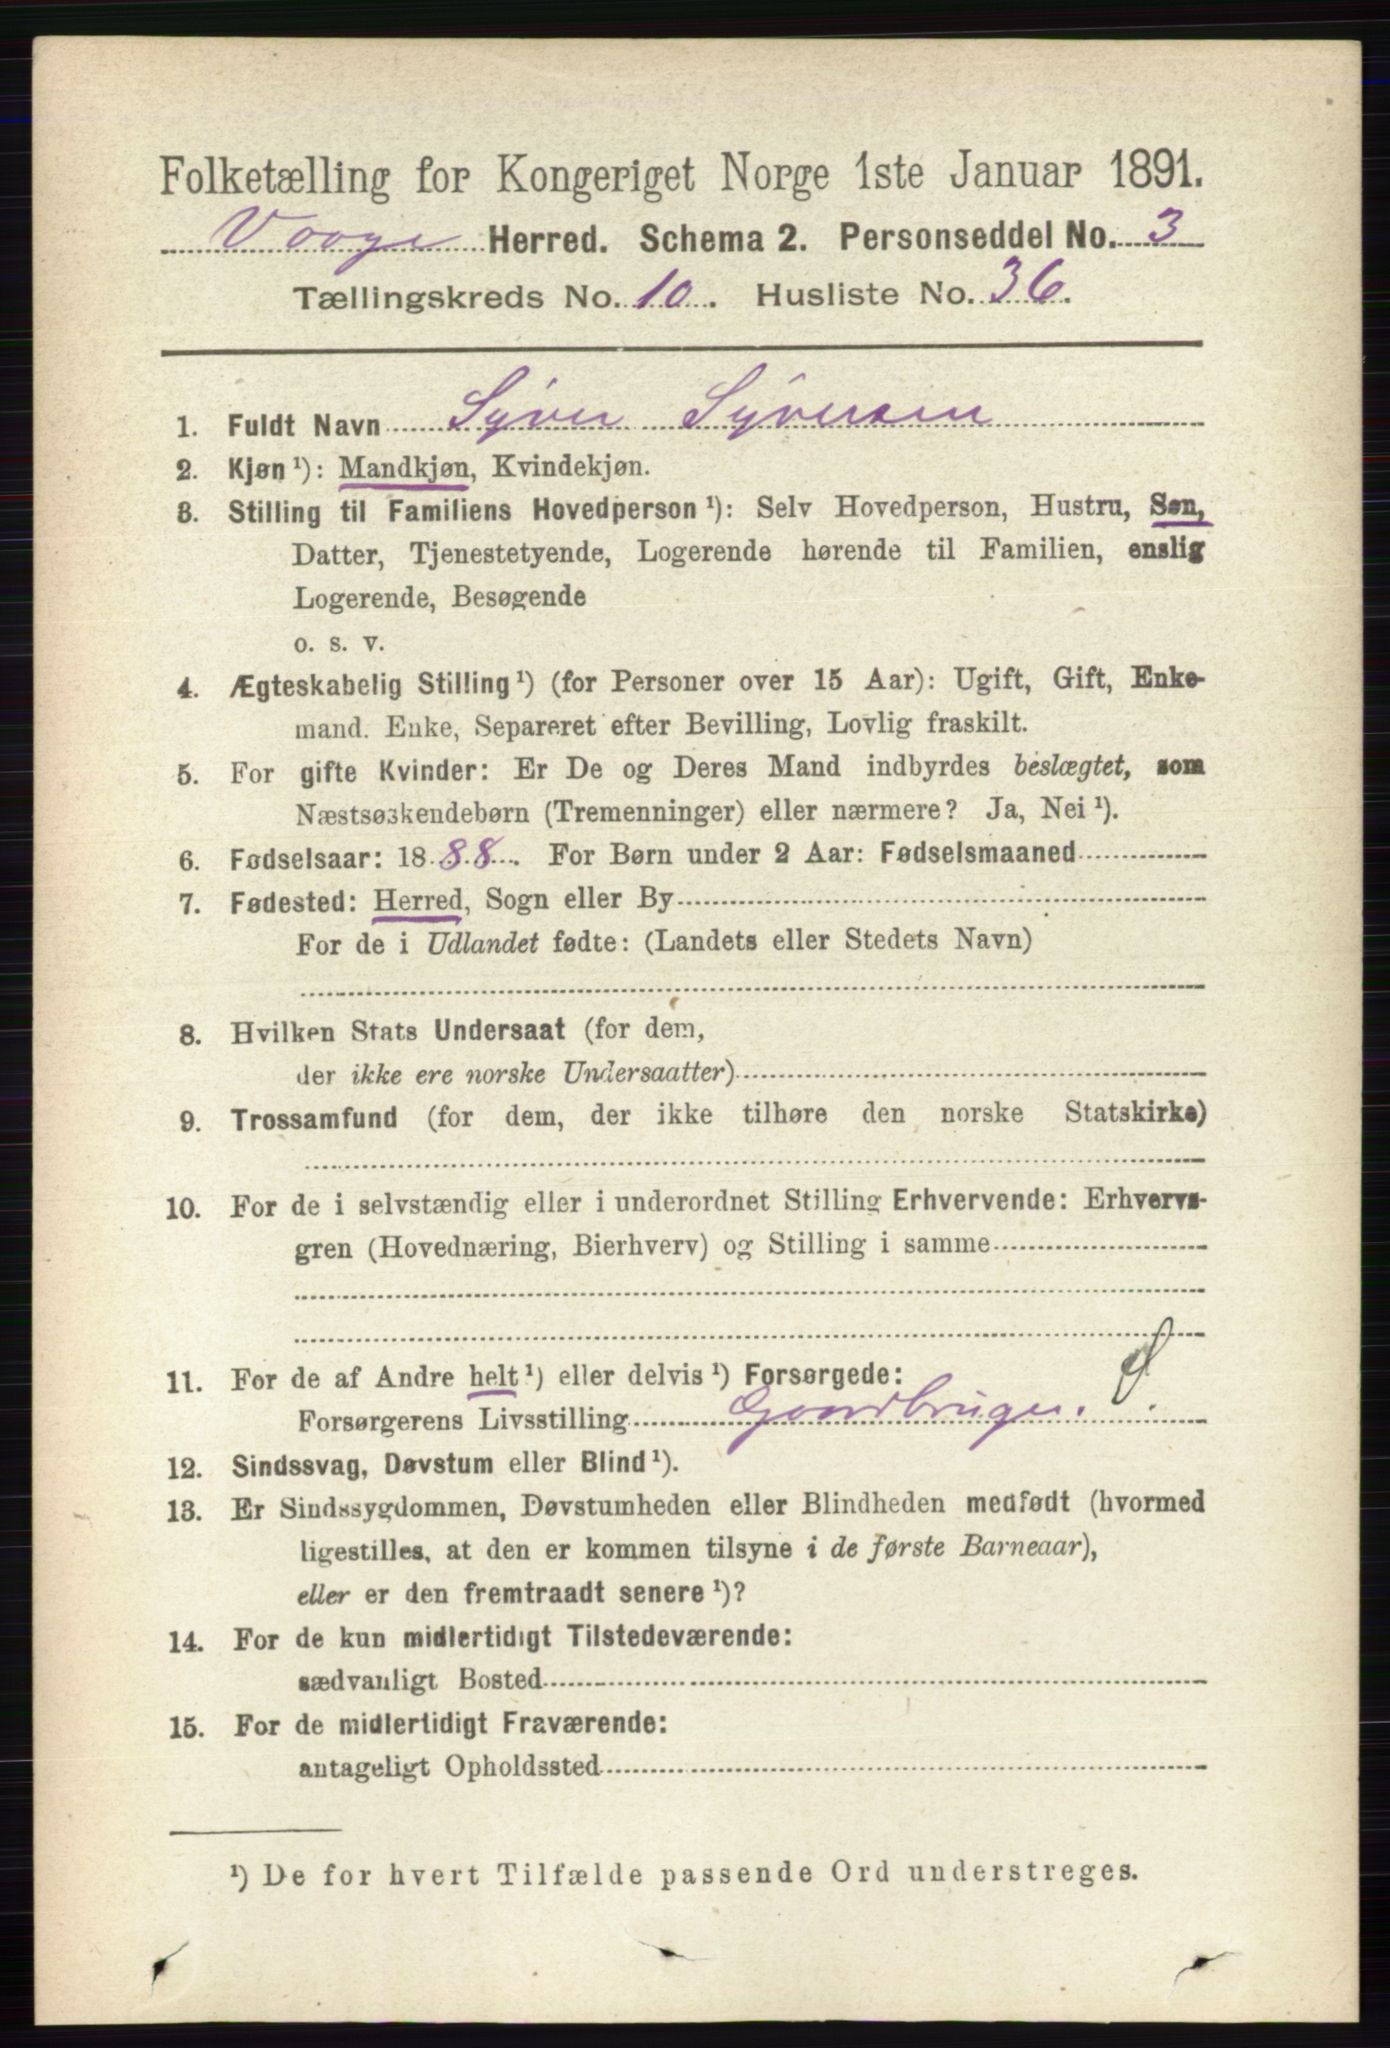 Folketælling for Kongeriget Norge 1ste Januar 1891.
Vaage Herred. Schema 2. Personseddel No. 3
Tællingskreds No. 10. Husliste No. 36.
1. Fuldt Navn Syver Syversen
2. Kjøn ¹): Mandkjøn, Kvindekjøn.
3. Stilling til Familiens Hovedperson ¹): Selv Hovedperson, Hustru, Søn,
Datter, Tjenestetyende, Logerende hørende til Familien, enslig
Logerende, Besøgende
o. s. v.
4. Ægteskabelig Stilling ¹) (for Personer over 15 Aar): Ugift, Gift, Enke-
mand. Enke, Separeret efter Bevilling, Lovlig fraskilt.
5. For gifte Kvinder: Er De og Deres Mand indbyrdes beslægtet, som
Næstsøskendebørn (Tremenninger) eller nærmere? Ja, Nei ¹).
6. Fødselsaar: 1888. For Børn under 2 Aar: Fødselsmaaned
7. Fødested: Herred, Sogn eller By
For de i Udlandet fødte: (Landets eller Stedets Navn)
8. Hvilken Stats Undersaat (for dem,
der ikke ere norske Undersaatter)
9. Trossamfund (for dem, der ikke tilhøre den norske Statskirke)
10. For de i selvstændig eller i underordnet Stilling Erhvervende: Erhvervs-
gren (Hovednæring, Bierhverv) og Stilling i samme
11. For de af Andre helt ¹) eller delvis ¹) Forsørgede:
Forsørgerens Livsstilling Gaardbruger.
12. Sindssvag, Døvstum eller Blind ¹).
13. Er Sindssygdommen, Døvstumheden eller Blindheden medfødt (hvormed
ligestilles, at den er kommen tilsyne i de første Barneaar),
eller er den fremtraadt senere ¹)?
14. For de kun midlertidigt Tilstedeværende:
sædvanligt Bosted
15. For de midlertidigt Fraværende:
antageligt Opholdssted
¹) De for hvert Tilfælde passende Ord understreges.